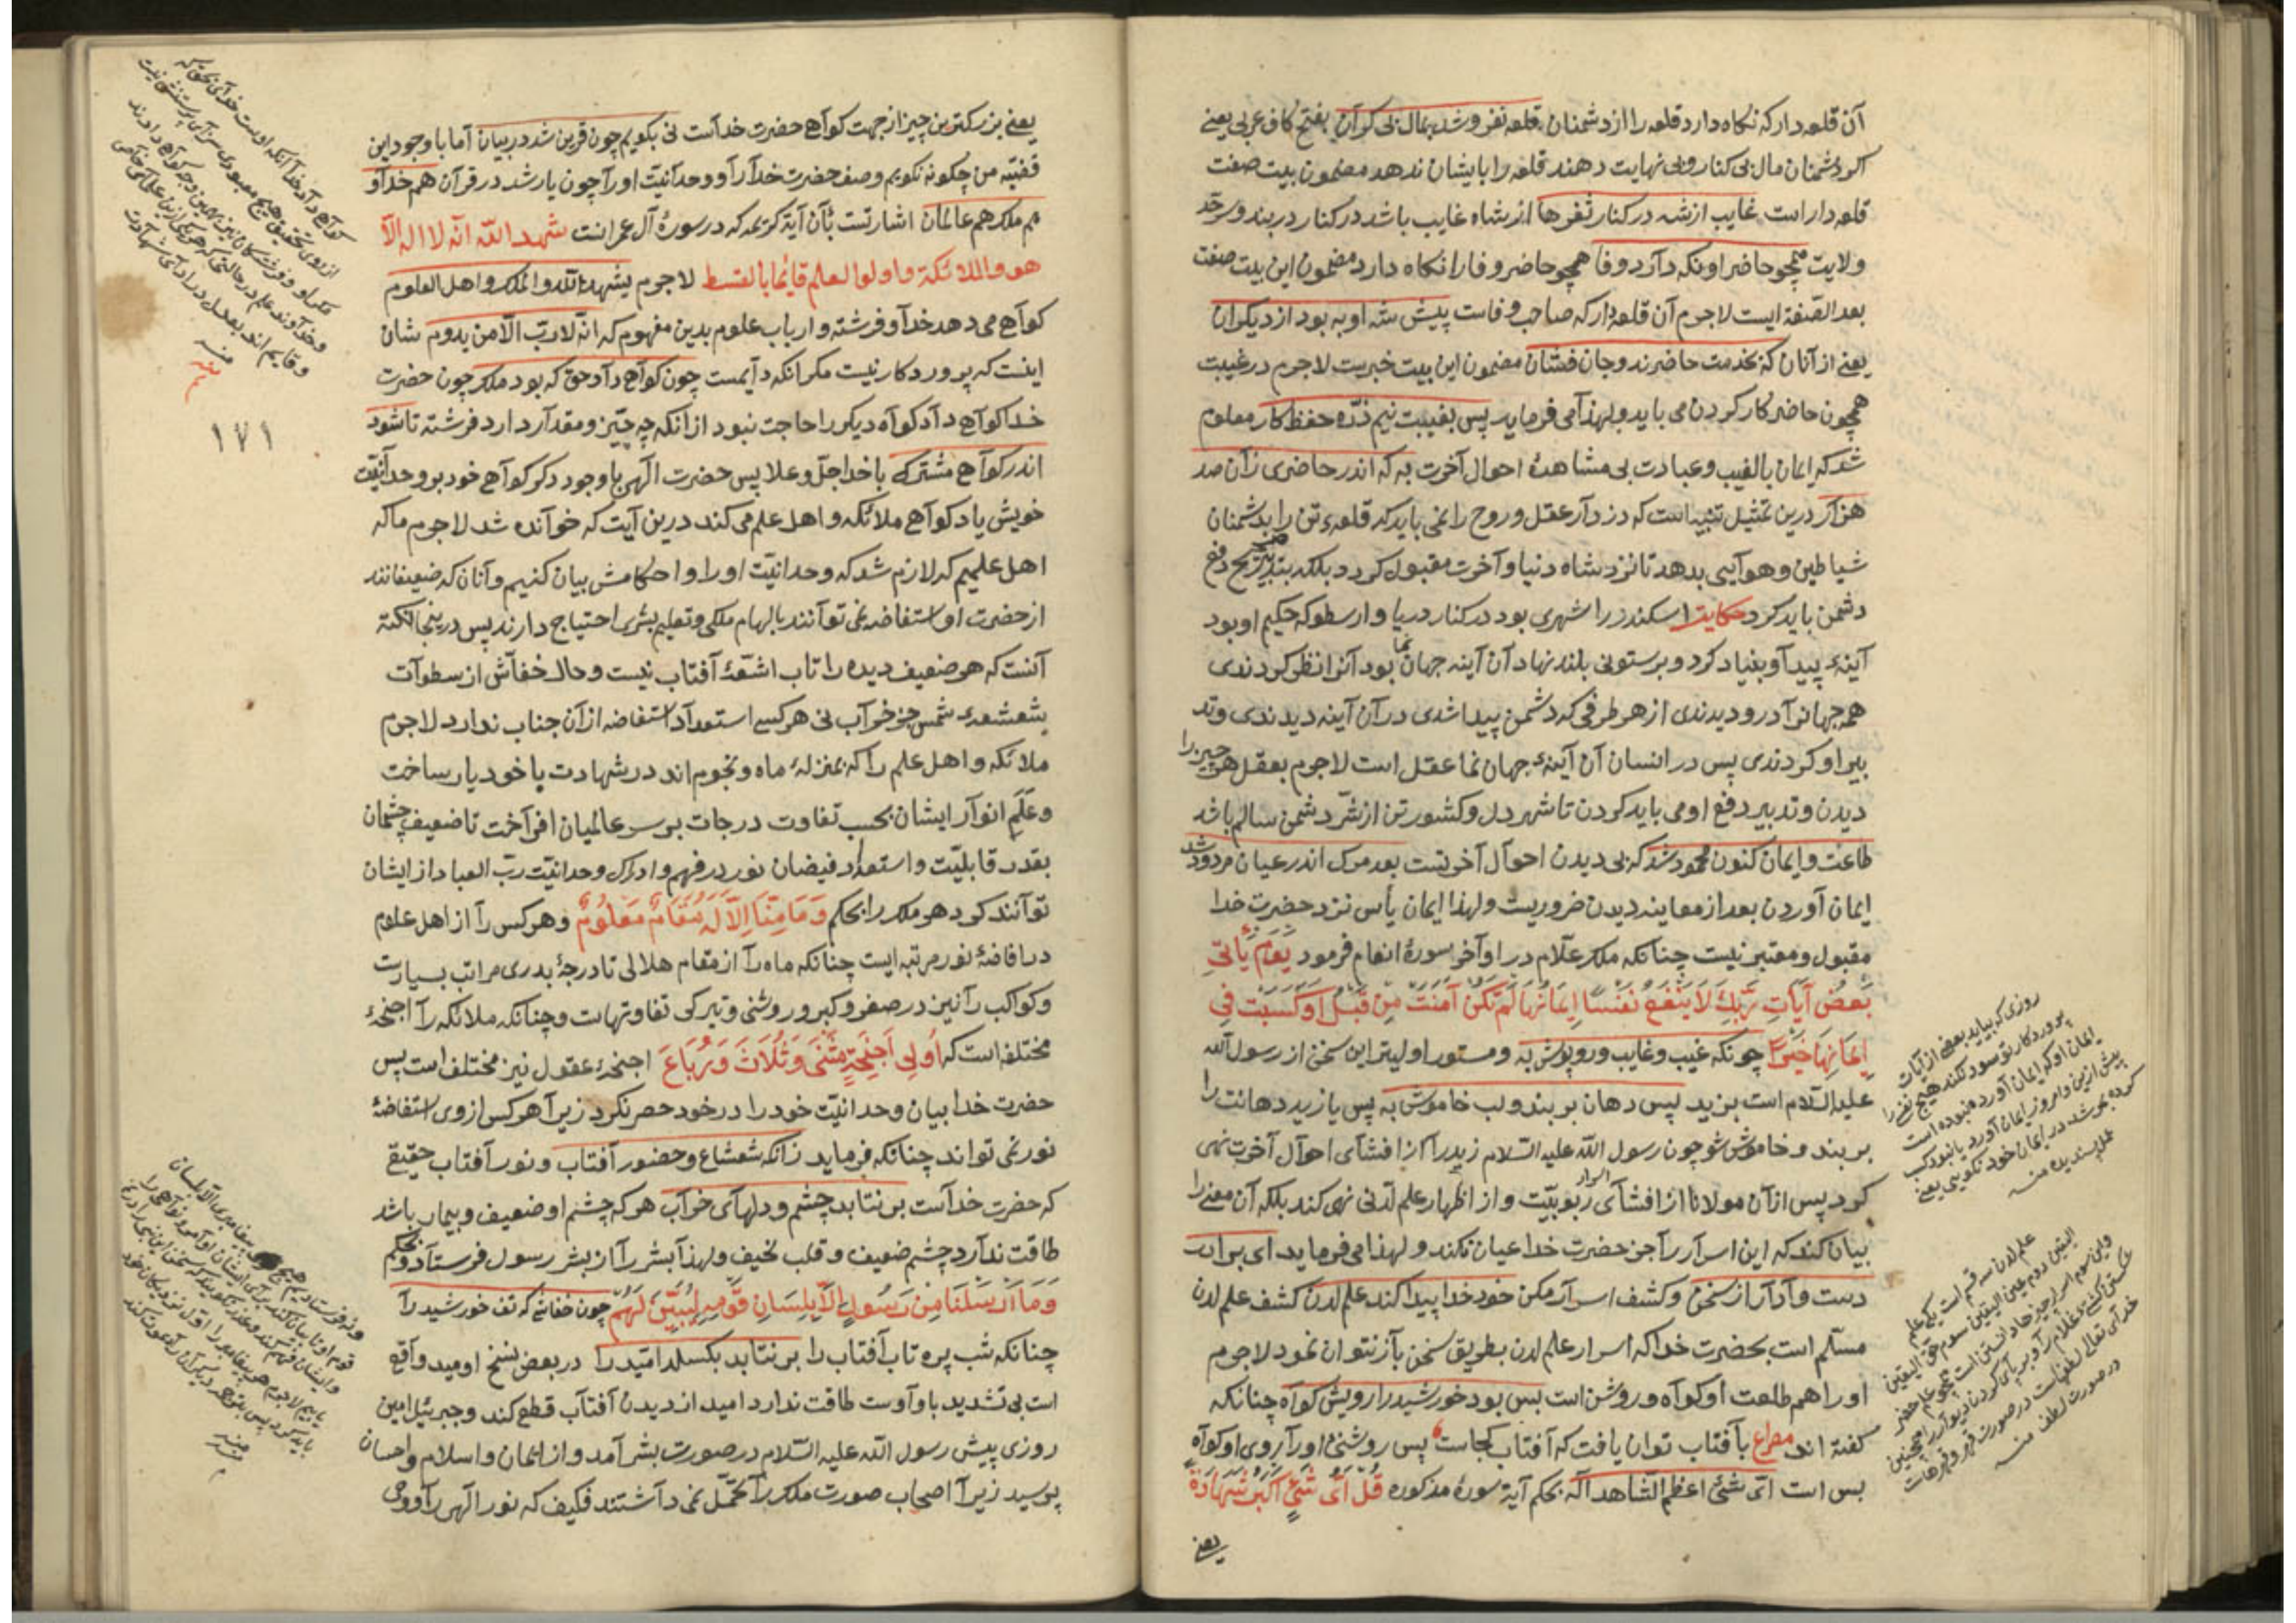 آن قلعه دار که نگاه دارد قلعه را از دشمنان قلعه نفروشد بمال بی کران بفتح کاف عربی یعنی
اکر دشمنان مال بی کنار وبی نهایت دهند قلعه را بایشان ندهد مضمون بیت صفت
قلعه دار است غایب از شه در کنار ثغرها از شاه غایب باشد در کنار دربند وسرحد
ولایت همچو حاضر او نکه دارد وفا همچو حاضر وفا را نکاه دارد مضمون این بیت صفت
بعد الصفة ایست لاجرم آن قلعه دار که صاحب وفاست پیش شه او به بود از دیکران
یعنی از آنان که بخدمت حاضرند وجان فشان مضمون این بیت خبریت لاجرم در غیبت
همچون حاضر کار کردن می باید ولهذا می فرماید پس بغیبت نیم ذره حفظ کار معلوم
شد که ایمان بالغیب وعبادت بی مشاهدهٔ احوال آخرت به که اندر حاضری زان صد
هزار درین تمثیل تنبیه است که دزدار عقل وروح را نمی باید که قلعهٔ تن را بدشمنان
شیاطین وهوایی بدهد تا نزد شاه دنیا وآخرت مقبول کردد بلکه بتدبیر دفع
دشمن باید کرد حکایت اسکندر را شهری بود در کنار دریا وارسطو که حکیم او بود
آینهٔ پیدا وبنیاد کرد وبر ستونی بلند نهاد آن آینه جهان نما بود آنرا نظر کردندی
همه جهانرا درو دیدندی از هر طرفی که دشمن پیدا شدی در آن آینه دیدندی وتد
بیر او کردندی پس در انسان آن آینهٔ جهان نما عقل است لاجرم بعقل هر چیز را
دیدن وتدبیر دفع او می باید کردن تا شهر دل وکشور تن از شر دشمن سالم باشد
طاعت وایمان کنون محمود شد که بی دیدن احوال آخرتست بعد مرک اندر عیان مردود شد
ایمان آوردن بعد از معاینه دیدن ضروریست ولهذا ایمان یأس نزد حضرت خدا
مقبول ومعتبر نیست چنانکه ملک علام در اواخر سورهٔ انعام فرمود یَوْمَ یَأْتِی
بَعْضُ آیَاتِ رَبِّكَ لَا یَنْفَعُ نَفْسًا اِیمَانُهَا لَمْ تَكُنْ آمَنَتْ مِنْ قَبْلُ اَوْ كَسَبَتْ فِی
اِیمَانِهَا خَیْرًا چونکه غیب وغایب وروپوش به ومستور اولیتر این سخن از رسول الله
علیه السلام است بزید پس دهان بربند ولب خاموش به پس یا زید دهانت را
بربند وخاموش شو چون رسول الله علیه السلام زید را از افشای احوال آخرت نهی
کرد پس از آن مولانا از افشای اسرار ربوبیت واز اظهار علم لدنی نهی کند بلکه آن معنی را
بیان کند که این اسرار را جز حضرت خدا عیان نکند ولهذا می فرماید ای برادر
دست وادار از سخن وکشف اسرار مکن خود خدا پیدا کند علم لدن کشف علم لدن
مسلم است بحضرت خدا که اسرار علم لدن بطریق سخن باز نتوان نمود لاجرم
او را هم طلعت او کواه وروشن است بس بود خورشید را رویش کواه چنانکه
کفته اند مصراع بآفتاب توان یافت که آفتاب کجاست پس روشنی او را روی او کواه
بس است ای شئ اعظم الشاهد اله بحکم آیهٔ سورهٔ مذکوره قُلْ اَیُّ شَیْءٍ اَكْبَرُ شَهَادَةً
یعنی
روزی که بیاید بعضی از آیات
پروردکار تو سود نکند هیچ نفس را
ایمان او که ایمان آورده نبوده است
علم لدن سه قسم است یکی علم
الیقین دوم عین الیقین سوم حق الیقین
در صورت لطف منه
یعنی بزرکترین چیز از جهت کواهی حضرت خداست نی بکویم چون قرین شد در بیان اما با وجود این
قضیه من چکونه نکویم وصف حضرت خدا را ووحدانیت او را چون یار شد در قرآن هم خدا و
هم ملک هم عالمان اشارتست بآن آیهٔ کریمه که در سورهٔ آل عمرانست شهد الله انه لا اله الا
هو والملائكة واولوا العلم قایما بالقسط لاجرم یشهد الله والملک واهل العلوم
کواهی می دهد خدا وفرشته وارباب علوم بدین مفهوم که انه لا رب الا من یدوم شان
اینست که پروردکار نیست مکر آنکه دایمست چون کواهی داد حق که بود ملک چون حضرت
خدا کواهی داد کواه دیکر را حاجت نبود از آنکه چه چیز ومقدار دارد فرشته تا شود
اندر کواهی مشترک با خدا جل وعلا پس حضرت الهی با وجود ذکر کواهی خود بر وحدانیت
خویش یاد کواهی ملائکه واهل علم می کند درین آیت که خوانده شد لاجرم ما که
اهل علمیم که لازم شد که وحدانیت او را واحکامش بیان کنیم وآنان که ضعیفانند
از حضرت او استفاضه نمی توانند بالهام ملکی وتعلیم بشری احتیاج دارند پس در ینجا نکته
آنست که هر ضعیف دیده را تاب اشعهٔ آفتاب نیست وحال خفاش از سطوات
شعشعهٔ شمس جز خراب نی هر کسی استعداد استفاضه از آن جناب ندارد لاجرم
ملائکه واهل علم را که بمنزلهٔ ماه ونجوم اند در شهادت با خود یار ساخت
وعلم انوار ایشان بحسب تفاوت درجات بر سر عالمیان افراخت تا ضعیف چشمان
بقدر قابلیت واستعداد فیضان نور در فهم وادراک وحدانیت رب العباد از ایشان
توانند کرد هر ملک را بحکم وَمَا مِنَّا اِلَّا لَهُ مَقَامٌ مَعْلُومٌ وهر کس را از اهل علوم
در افاضهٔ نور مرتبه ایست چنانکه ماه را از مقام هلالی تا درجهٔ بدری مراتب بسیارست
وکواکب را نیز در صغر وکبر وروشنی وتیرکی تفاوتهاست وچنانکه ملائکه را اجنحهٔ
مختلفه است که اُولِی اَجْنِحَةٍ مَثْنَی وَثُلَاثَ وَرُبَاعَ اجنحهٔ عقول نیز مختلف است پس
حضرت خدا بیان وحدانیت خود را در خود حصر نکرد زیرا هر کس از وی استفاضهٔ
نور نمی تواند چنانکه فرماید زانکه شعشاع وحضور آفتاب ونور آفتاب حقیقی
که حضرت خداست بر نتابد چشم ودلهای خراب هر که چشم او ضعیف وبیمار باشد
طاقت ندارد چشم ضعیف وقلب نحیف ولهذا بشر را از بشر رسول فرستاد وبحکم
وَمَا اَرْسَلْنَا مِنْ رَسُولٍ اِلَّا بِلِسَانِ قَوْمِهِ لِیُبَیِّنَ لَهُمْ چون خفاشی که تف خورشید را
چنانکه شب پره تاب آفتاب را بر نتابد بکسلد امید را در بعض نسخ اومید واقع
است بی تشدید با واوست طاقت ندارد امید از دیدن آفتاب قطع کند وجبرئیل امین
روزی پیش رسول الله علیه السلام در صورت بشر آمد واز ایمان واسلام واحسان
پرسید زیرا اصحاب صورت ملک را تحمل نمی داشتند فکیف که نور الهی را ووحی
۱۷۱